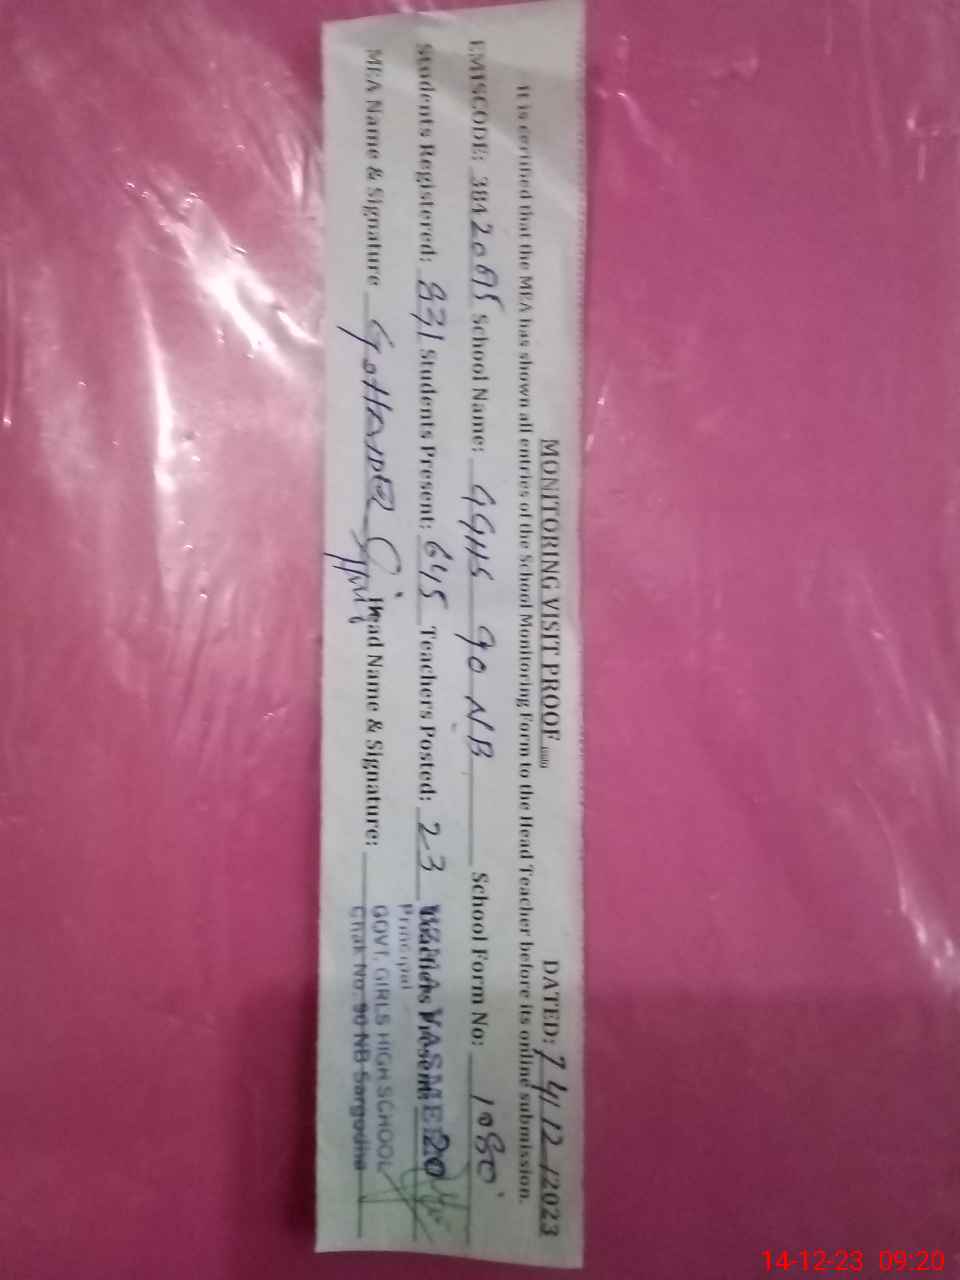 MONITORING VISIT PROOF
DATED: 14/12/2023
It is certified that the MEA has shown all entries of the School Monitoring Form to the Head Teacher before its online submission.
EMISCODE: School Name: GGHS 90 NB School Form No: 1080
Students Registered: 831 Students Present: 645 Teachers Posted: 23 Teachers Present: 20
Principal
MEA Name & Signature G. HAIDER Head Name & Signature:
GOVT. GIRLS HIGH SCHOOL
Chak No. 90 NB Sargodha
14-12-23 09:20